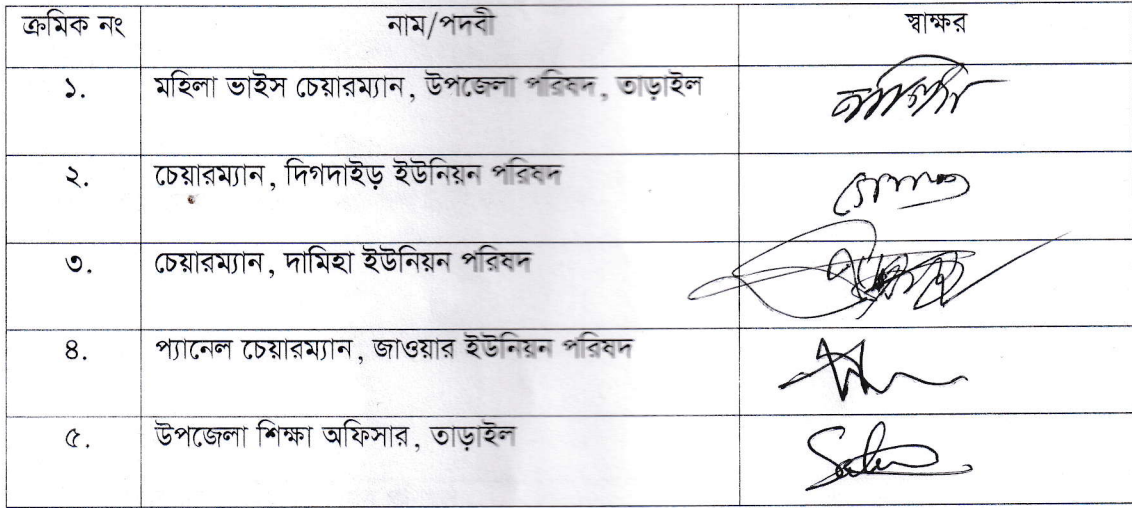 ক্রমিক নং নাম/পদবী স্বাক্ষর
১. মহিলা ভাইস চেয়ারম্যান, উপজেলা পরিষদ, তাড়াইল
২. চেয়ারম্যান, দিগদাইড় ইউনিয়ন পরিষদ
৩. চেয়ারম্যান, দামিহা ইউনিয়ন পরিষদ
৪. প্যানেল চেয়ারম্যান, জাওয়ার ইউনিয়ন পরিষদ
৫. উপজেলা শিক্ষা অফিসার, তাড়াইল